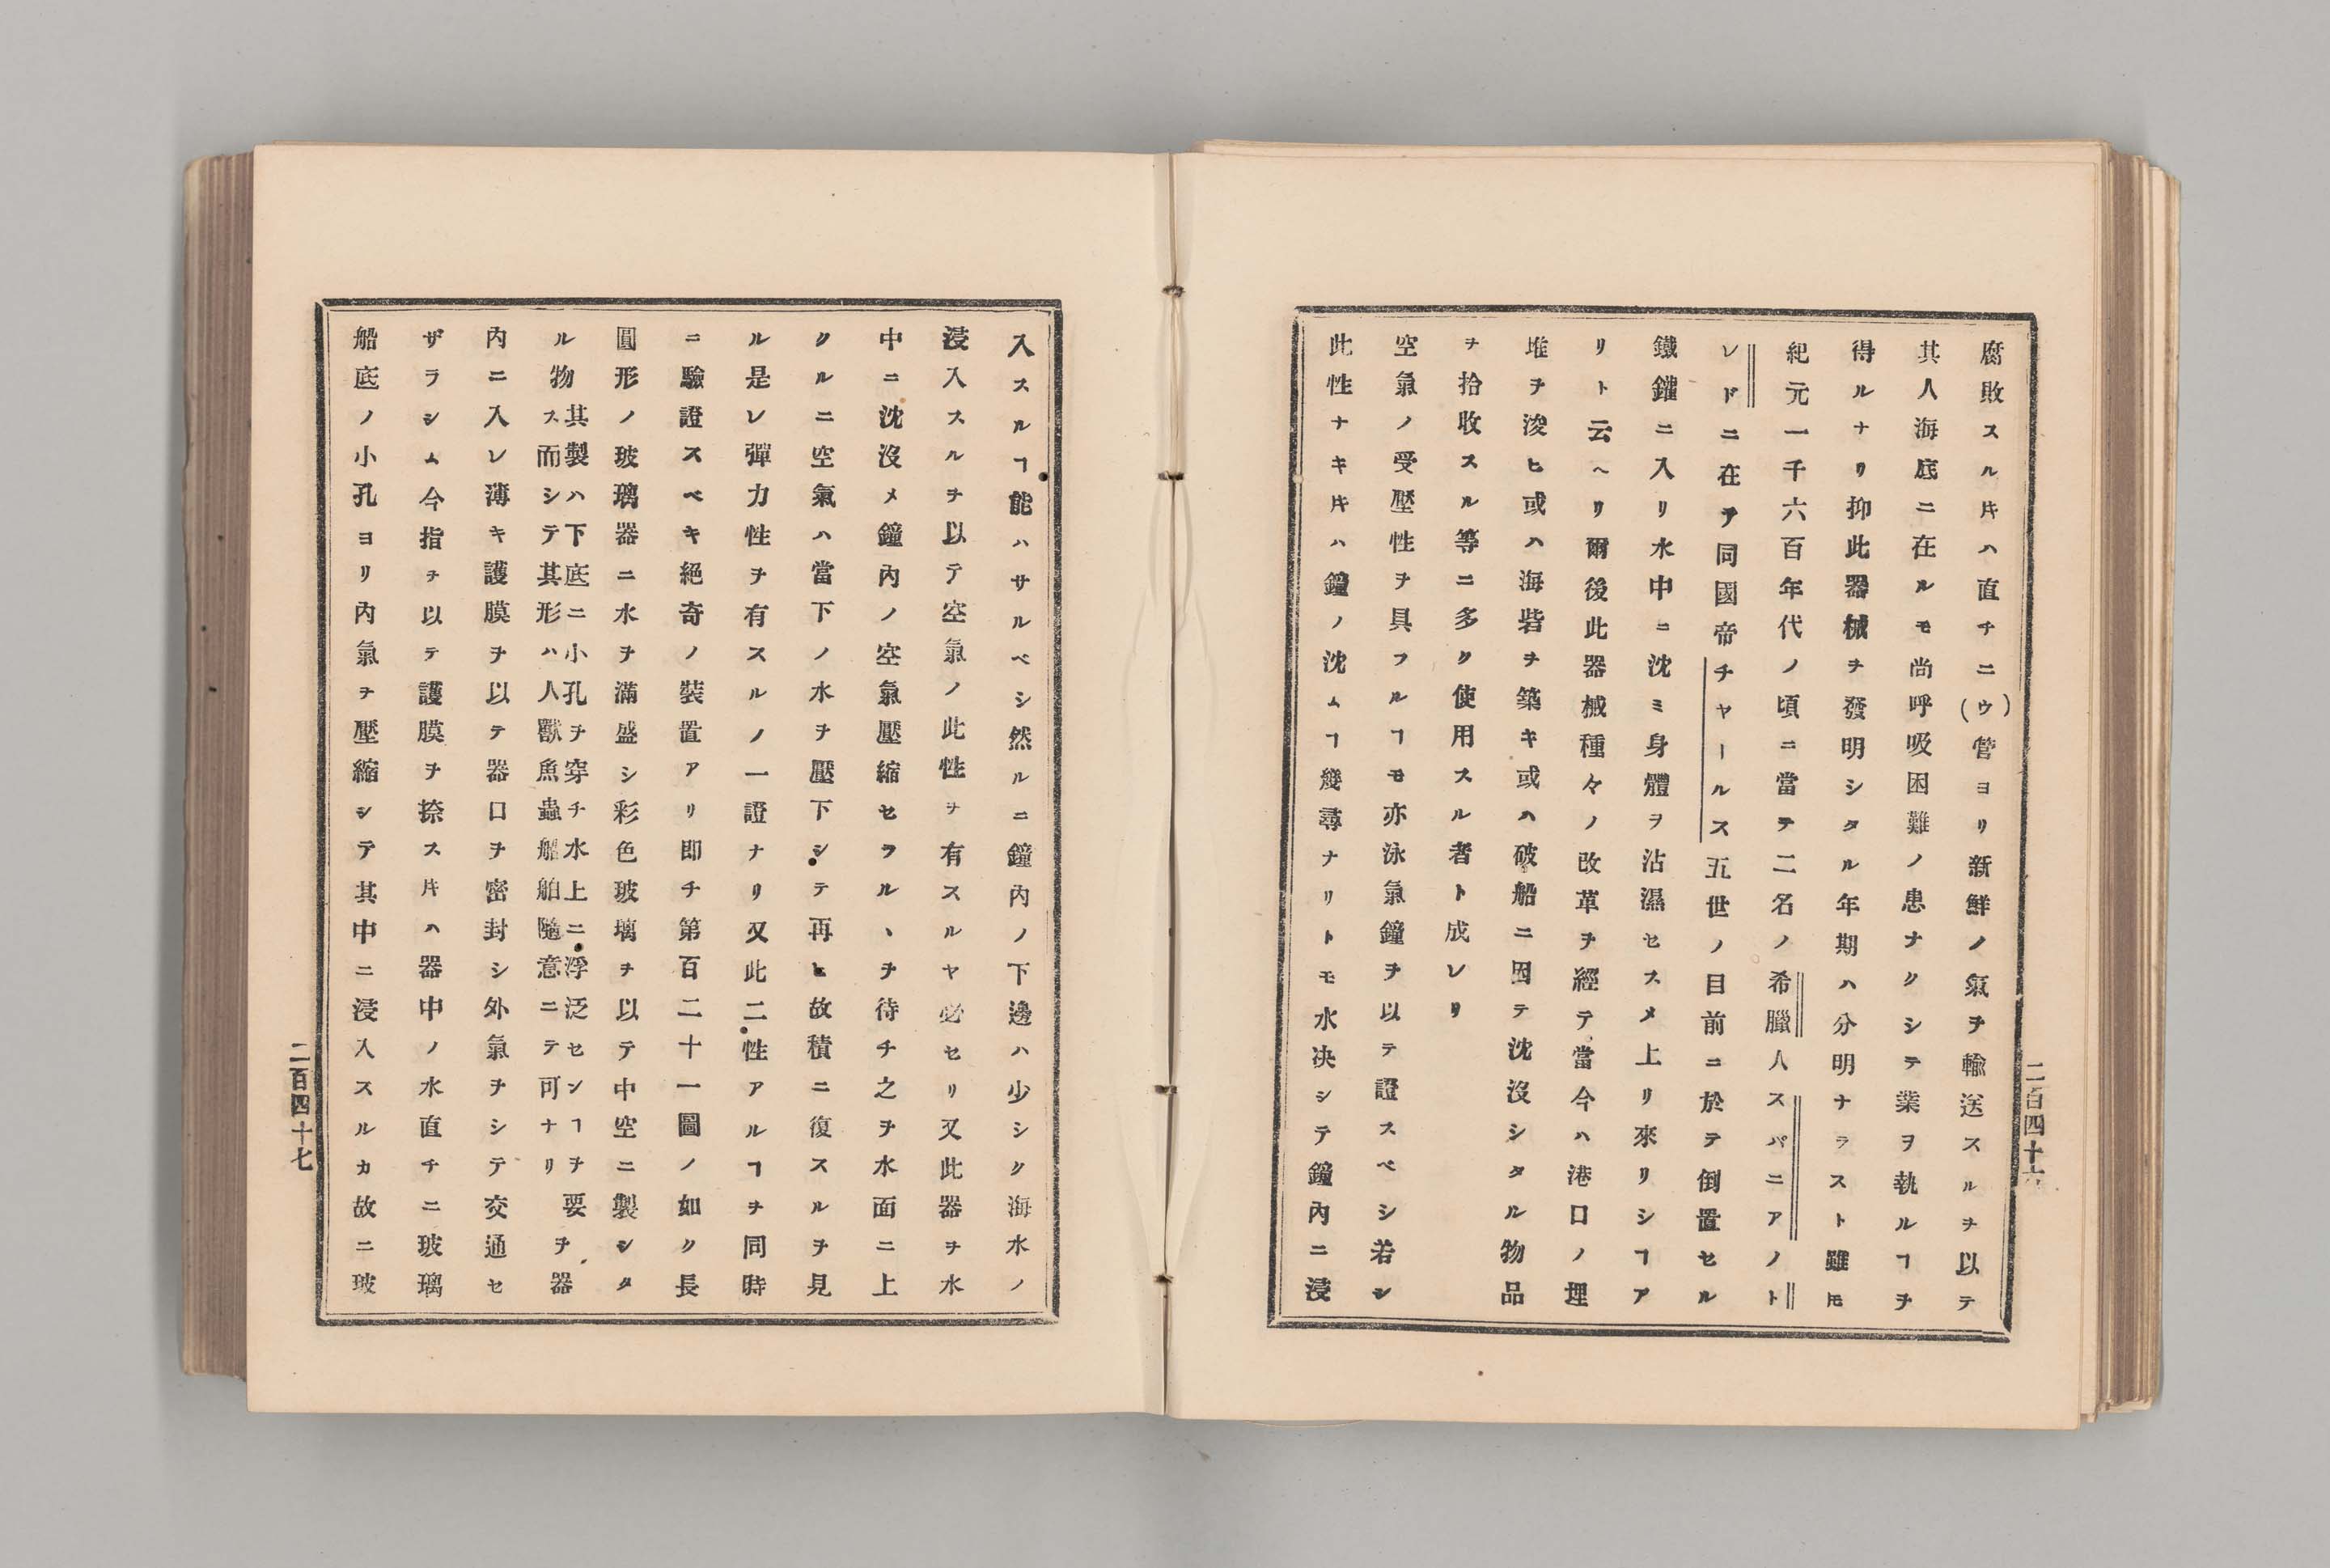 腐敗スル𪜈ハ直チニ(ウ)管ヨリ新鮮ノ氣ヲ輸送スルヲ以テ
其人海底ニ在ルモ尚呼吸困難ノ患ナクシテ業ヲ執ルヿヲ
得ルナリ抑此器械ヲ發明シタル年期ハ分明ナラスト雖𪜈
紀元一千六百年代ノ頃ニ當テ二名ノ希臘人スパニアノト
レドニ在テ同國帝チヤールス五世ノ目前ニ於テ倒置セル
鐵鑵ニ入リ水中ニ沈ミ身體ヲ沾濕セスメ上リ來リシヿア
リト云ヘリ爾後此器械種々ノ改革ヲ經テ當今ハ港口ノ埋
堆ヲ浚ヒ或ハ海砦ヲ築キ或ハ破船ニ因テ沈沒シタル物品
ヲ拾收スル等ニ多ク使用スル者ト成レリ
空氣ノ受壓性ヲ具フルヿモ亦泳氣鐘ヲ以テ證スベシ若シ
此性ナキ𪜈ハ鐘ノ沈ムヿ幾尋ナリトモ水决シテ鐘內ニ浸
二百四十六
入スルヿ能ハサルベシ然ルニ鐘內ノ下邊ハ少シク海水ノ
浸入スルヲ以テ空氣ノ此性ヲ有スルヤ必セリ又此器ヲ水
中ニ沈沒メ鐘內ノ空氣壓縮セラルヽヲ待チ之ヲ水面ニ上
クルニ空氣ハ當下ノ水ヲ壓下シテ再ヒ故積ニ復スルヲ見
ル是レ彈力性ヲ有スルノ一證ナリ又此二性アルヿヲ同時
ニ驗證スベキ絕奇ノ裝置アリ即チ第百二十一圖ノ如ク長
圓形ノ玻璃器ニ水ヲ滿盛シ彩色玻璃ヲ以テ中空ニ製シタ
ル物其製ハ下底ニ小孔ヲ穿チ水上ニ浮泛センヿヲ要
ス而シテ其形ハ人獸魚蟲船舶隨意ニテ可ナリヲ器
內ニ入レ薄キ護膜ヲ以テ器口ヲ密封シ外氣ヲシテ交通セ
ザラシム今指ヲ以テ護膜ヲ捺ス𪜈ハ器中ノ水直チニ玻璃
船底ノ小孔ヨリ內氣ヲ壓縮シテ其中ニ浸入スルカ故ニ玻
二百四十七